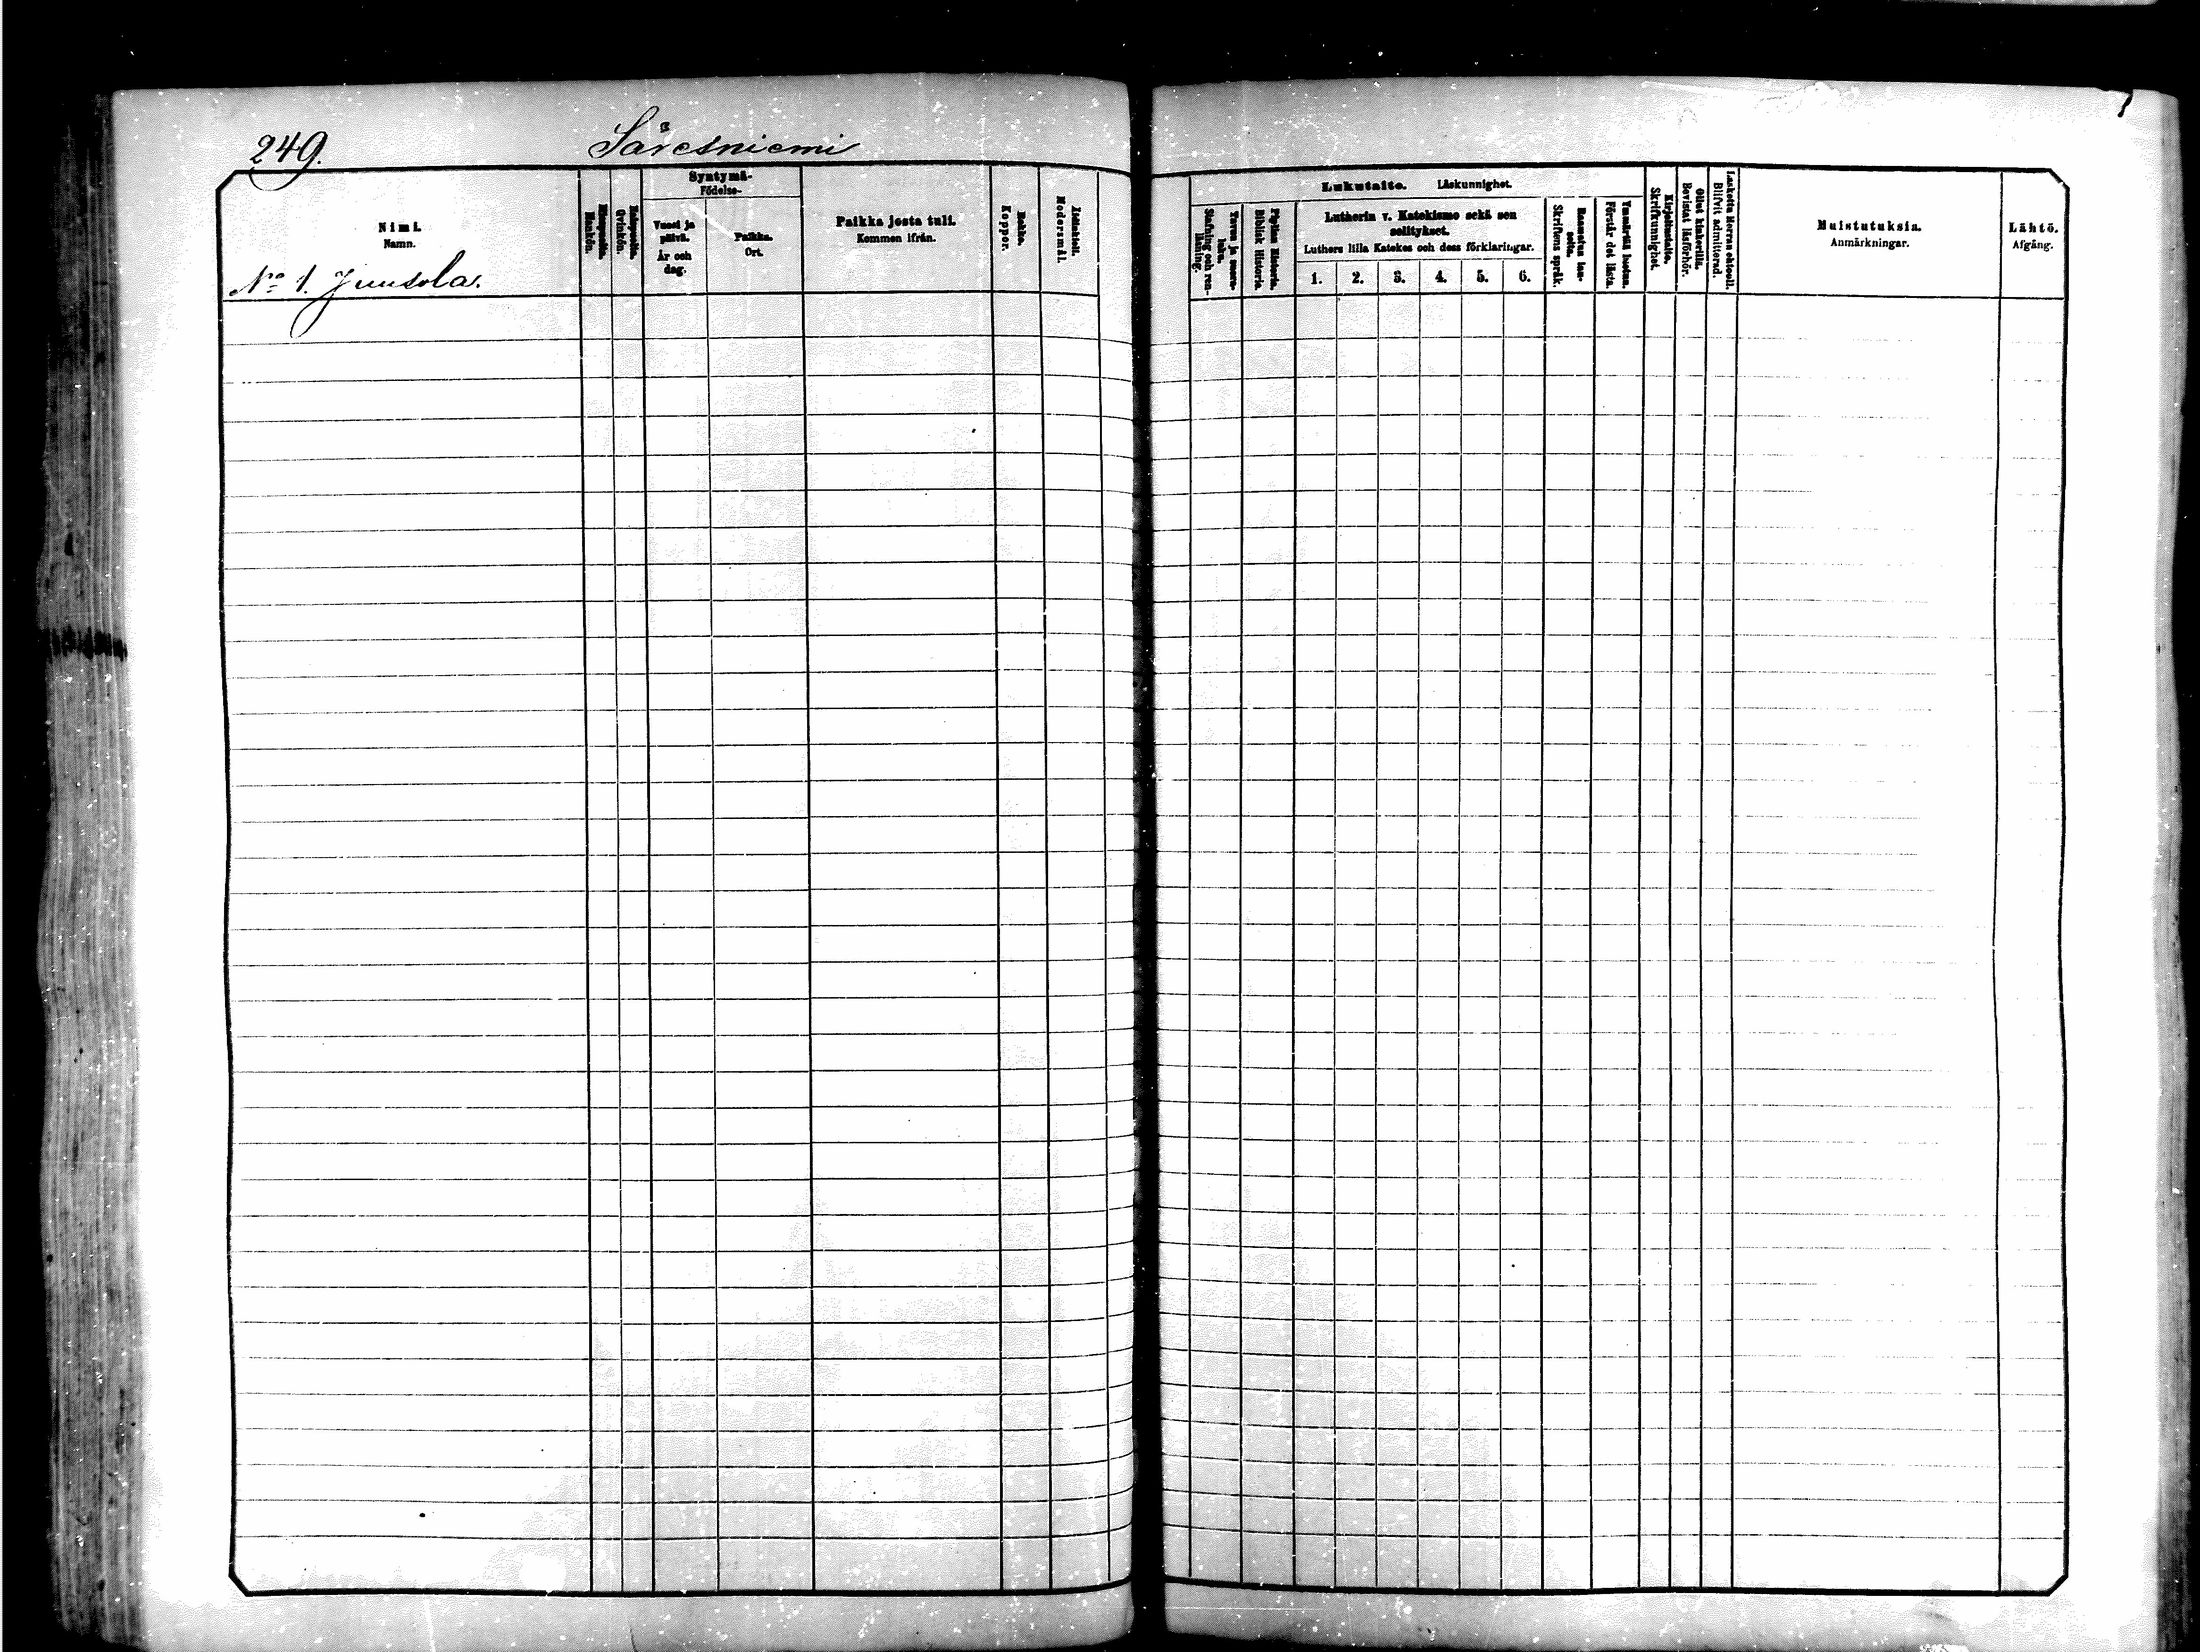 249.
Säresniemi
Nimi.
Namn.
Miespuolia.
Mankön.
Vaimopuolia.
Qvinkön.
Syntymä-
Födelse-
Vuosi ja
päivä.
År och
dag.
Paikka.
Ort.
Paikka josta tuli.
Kommen ifrån.
Rokko.
Koppor.
Äidinkieli.
Modersmål.
No 1. Juusola.
Lukutaito. Läskunnighet.
Tavuu ja suora-
luku.
Stafning och ren-
läsning.
Piplian Historia.
Biblisk Historia.
Lutherin v. Katekismo sekä sen
selitykset.
Luthers lilla Katekes och dess förklaringar.
1. 2. 3. 4. 5. 6.
Raamatun lau-
seita.
Skriftens språk.
Ymmärtää luetun.
Förstår det lästa.
Kirjoitustaito.
Skrifkunnighet.
Ollut kinkerillä.
Bevistat läsförhör.
Laskettu Herran ehtooll.
Blifvit admitterad.
Muistutuksia.
Anmärkningar.
Lähtö.
Afgång.